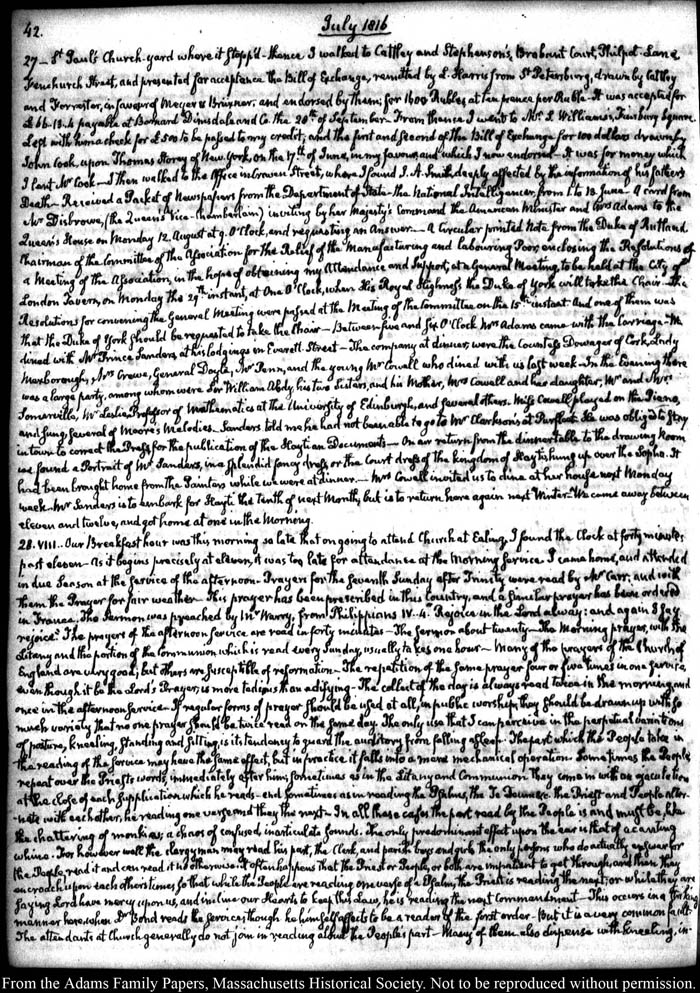 42.
July 1816
27 — St Paul's Church-yard where it stopp'd — thence I walked to Cattley and Stephenson's, Brabant Court, Philpot-Lane
Fenchurch Street, and presented for acceptance the Bill of Exchange, remitted by L. Harris from St Petersburg, drawn by Cattley
and Forrester, in favour of Meyer & Bruxner; and endorsed by them; for 1600 Rubles at ten pence per Ruble. It was accepted for
£ 66.13.4 payable at Barnard Dimsdale and Co the 20th of September. From thence I went to Mr S. Williams's, Finsbury Square.
Left with him a check for £500 to be passed to my credit; and the first and second of the Bill of Exchange for 100 dollars drawn by
John Cook, upon Thomas Storey of New York, on the 17th of June, in my favour, and which I now endorsed — It was for money which
I lent Mr Cook — I then walked to the Office in Craven Street, where I found J. A. Smith deeply affected by the information of his father's
Death — Received a Packet of Newspapers from the Department of State — the National Intelligencer, from 1 to 18 June. A card from
Mr Disbrowe, (the Queen's Vice-Chamberlain) inviting by her Majesty's Command the American Minister and Mrs Adams to the
Queen's House on Monday 12. August at 9. O'Clock, and requesting an Answer. — A Circular printed Note from the Duke of Rutland
Chairman of the Committee of the Association for the Relief of the Manufacturing and labouring Poor, enclosing the Resolutions of
a Meeting of the Association, in the hope of obtaining my Attendance and Support, at a General Meeting, to be held at the City of
London Tavern, on Monday the 29th instant, at One O'Clock, when His Royal Highness the Duke of York will take the Chair — The
Resolutions for convening the General Meeting were passed at the Meeting of the Committee on the 15th instant and one of them was
that the Duke of York should be requested to take the Chair — Between five and Six O'Clock Mrs Adams came with the Carriage — We
dined with Mr Prince Sanders, at his lodgings in Everett Street — The company at dinner, were the Countess Dowager of Cork, Lady
Mexborough, Mrs Crewe, General Doyle, Mr Penn, and the young Mr Cowall who dined with us last week — In the Evening there
was a large party, among whom were Sir William Abdy, his two Sisters, and his Mother, Mrs Cowall and her daughter, Mr and Mrs
Somerville, Mr Leslie, Professor of Mathematics at the University of Edinburgh, and several others. Miss Cowall played on the Piano,
and sung, several of Moore's Melodies — Sanders told me he had not been able to go to Mr Clarkson's at Purfleet. He was obliged to stay
in town to correct the Press for the publication of the Haytian Documents — On our return from the dinner table to the drawing Room
we found a Portrait of Mr Sanders, in a splendid fancy dress, or the Court dress of the kingdom of Hayti, hung up over the Sopha. It
had been brought home from the Painters while we were at dinner. — Mrs Cowall invited us to dine at her house next Monday
week. Mr Sanders is to embark for Hayti the tenth of next Month, but is to return here again next Winter — We came away between
eleven and twelve, and got home at one in the Morning.
28. VIII. Our Breakfast hour was this morning so late that on going to attend Church at Ealing, I found the Clock at forty minutes
past eleven — As it begins precisely at eleven, it was too late for attendance at the Morning Service. I came home, and attended
in due Season at the Service of the afternoon — Prayers for the Seventh Sunday after Trinity were read by Mr Carr, and with
them the Prayer for fair weather — This prayer has been prescribed in this Country, and a Similar prayer has been ordered
in France. The Sermon was preached by Mr Warry, from Philippians IV. 4. Rejoice in the Lord alway: and again I say
rejoice. The prayers of the afternoon Service are read in forty minutes — The Sermon about twenty — The Morning prayer, with the
Litany and the portion of the Communion which is read every Sunday, usually takes one hour — Many of the prayers of the Church of
England are very good; but others are susceptible of reformation — The repetition of the same prayer four or five times in one service,
even though it be the Lord's Prayer, is more tedious than edifying — The collect of the day is always read twice in the morning and
once in the afternoon Service. If regular forms of prayer should be used at all, in public worship, they should be drawn up with so
much variety that no one prayer should be twice read on the same day. The only use that I can perceive in the perpetual variations
of posture, kneeling, standing and sitting, is its tendency to guard the auditory from falling asleep. The part which the People take in
the reading of the service may have the same effect, but in practice it falls into a mere mechanical operation. Sometimes the People
repeat over the Priest's words, immediately after him; sometimes as in the Litany and Communion they come in with an ejaculation
at the close of each supplication which he reads — and sometimes as in reading the Psalms, the Te Deum &c. the Priest and People alter-
nate with each other, he reading one verse and they the next — In all these cases the part read by the People is and must be, like
the chattering of monkies; a chaos of confused inarticulate sounds. The only predominant effect upon the ear is that of a canting
whine. For however well the clergyman may read his part, the Clerk, and parish boys and girls the only persons who do actually answer for
the People, read it and can read it no otherwise. It often happens that the Priest or People, or both are impatient to get through, and then they
encroach upon each other's time; so that while the People are reading one verse of a Psalm, the Priest is reading the next; or while they are
saying Lord have mercy upon us, and incline our Hearts to keep this Law, he is reading the next Commandment — This occurs in a striking
manner here, when Dr Bond reads the Service; though he himself affects to be a reader of the first order — But it is a very common fault.
The attendants at Church generally do not join in reading aloud the People's part — Many of them also dispense with kneeling, in-
From the Adams Family Papers, Massachusetts Historical Society. Not to be reproduced without permission.